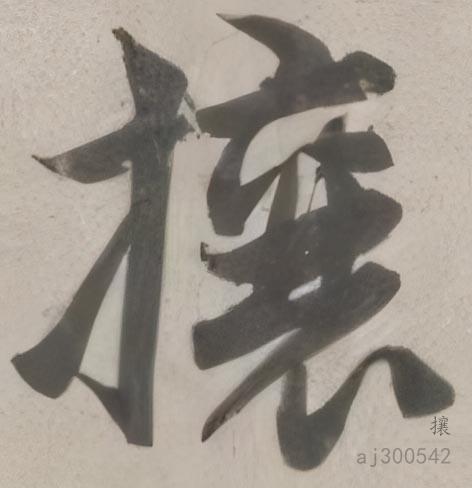 攘
攘
aj300542